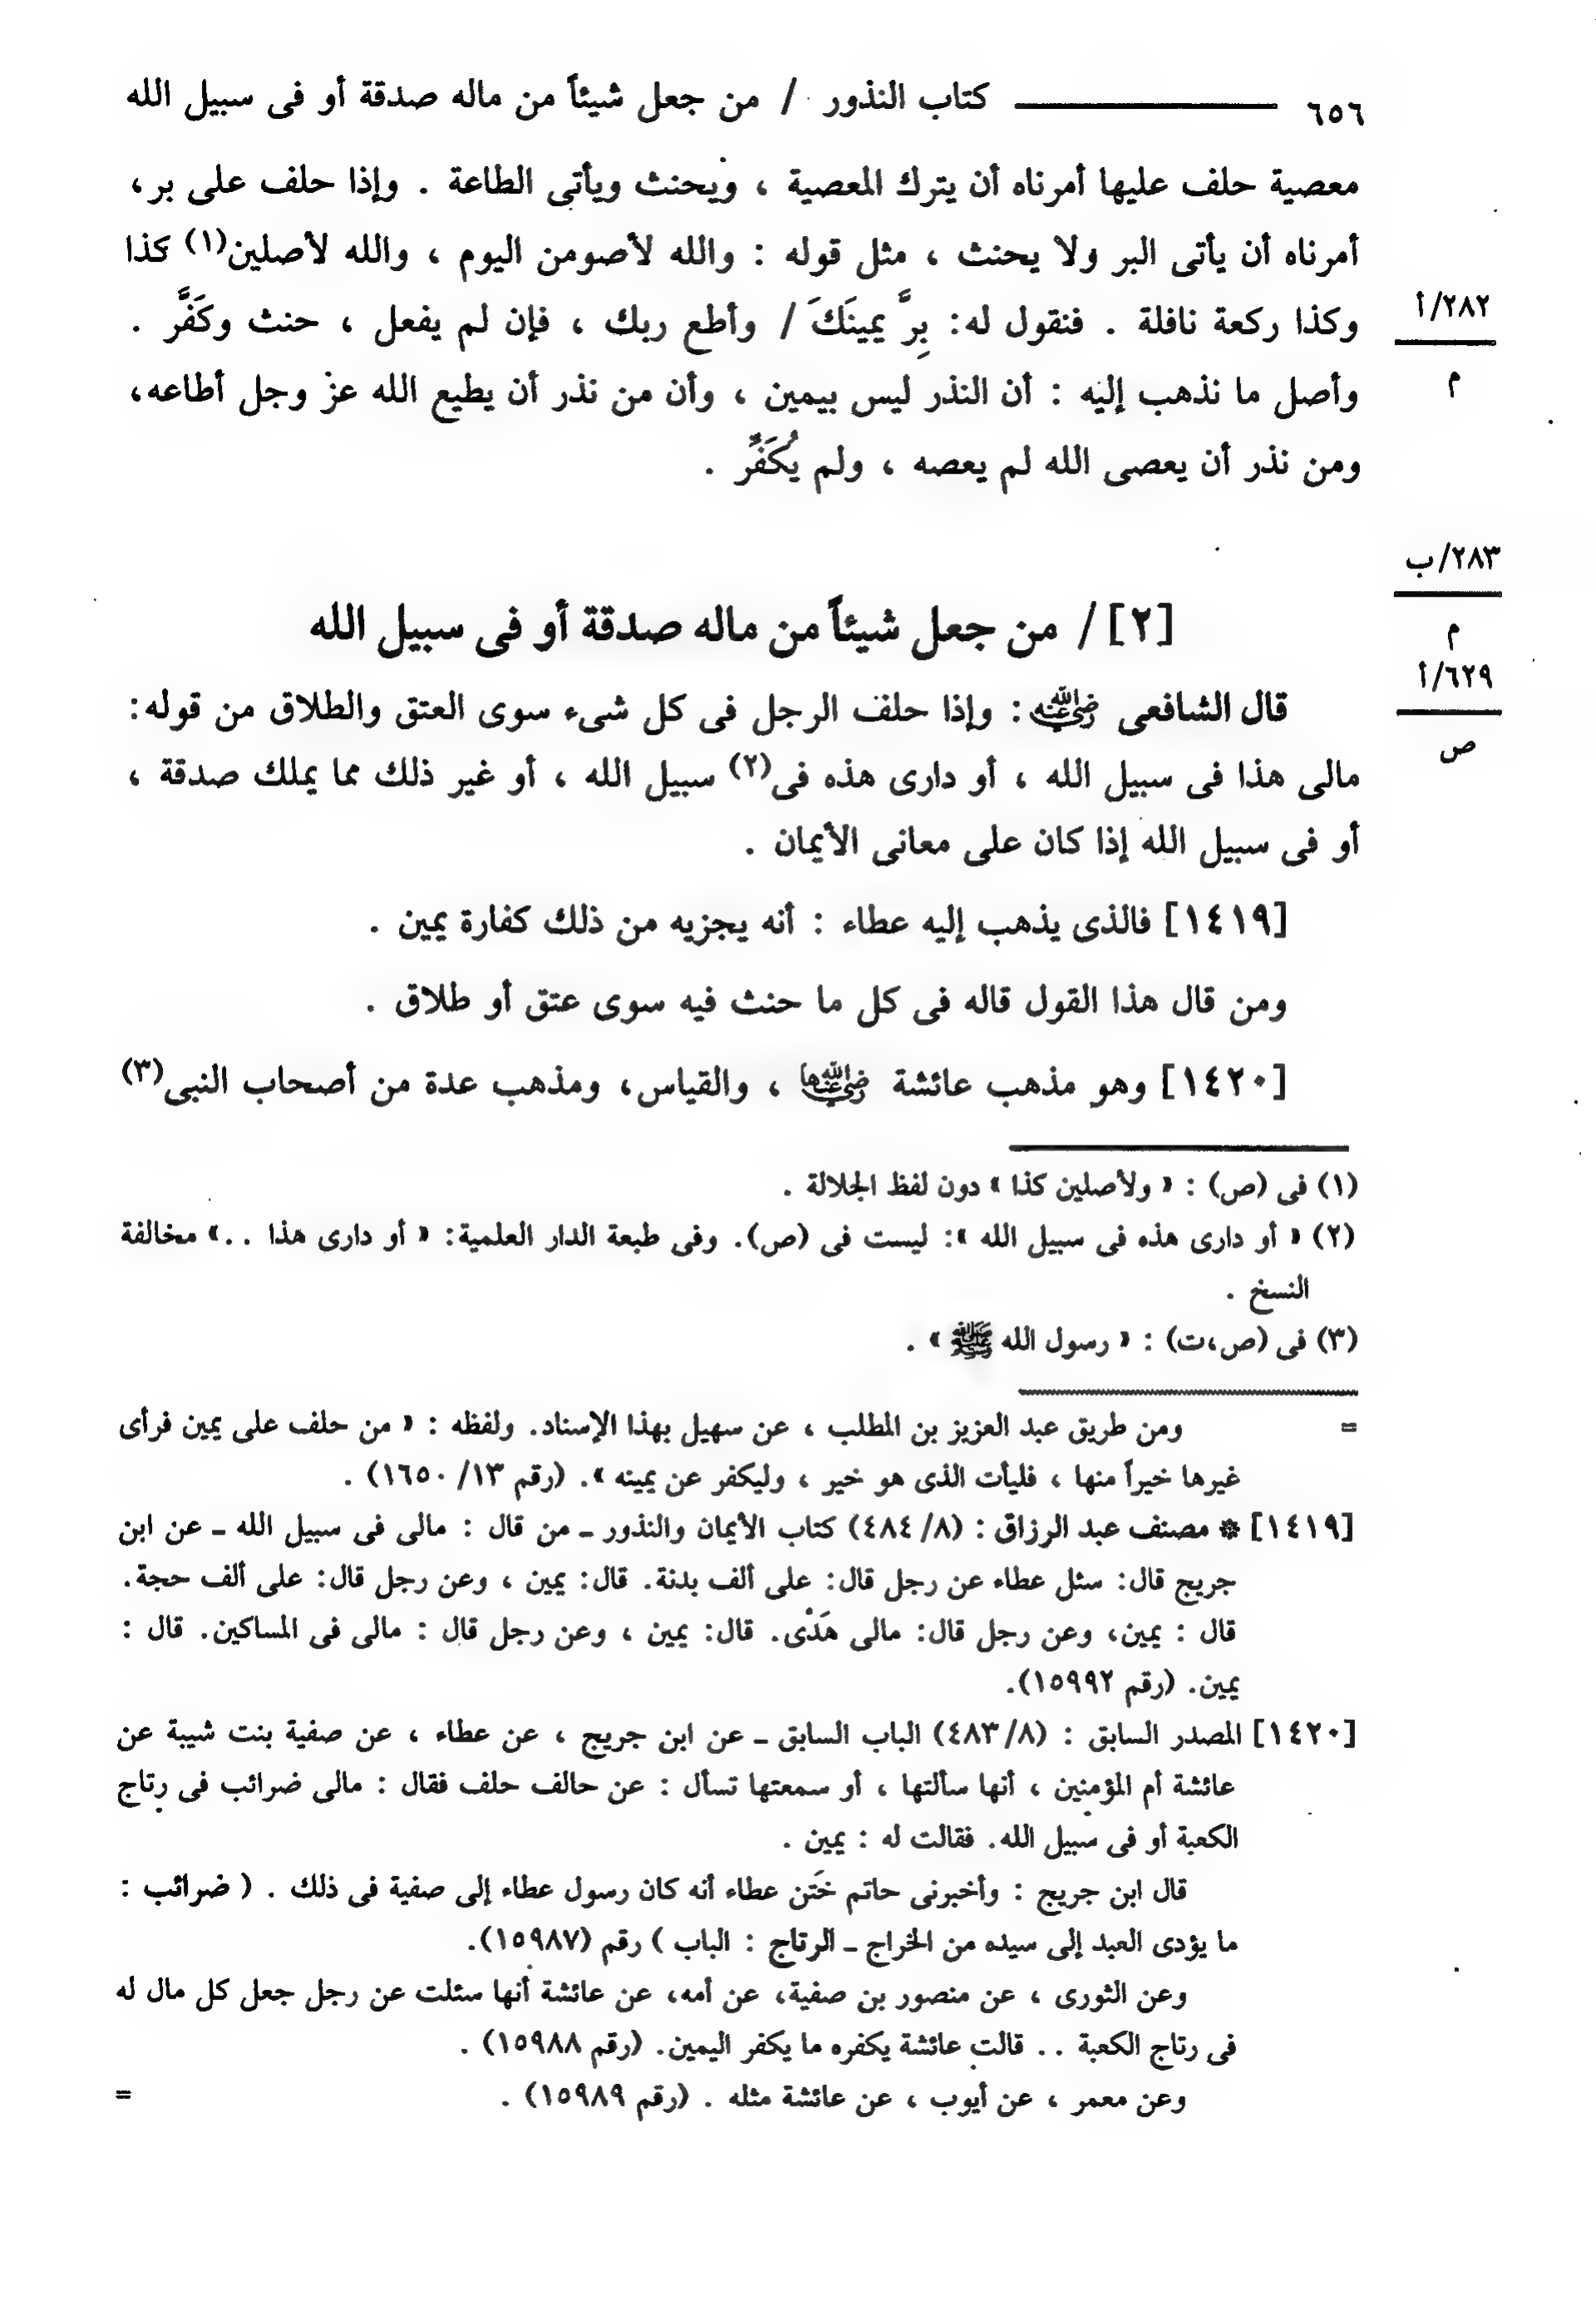 ٦٥٦ كتاب النذور / من جعل شيئاً من ماله صدقة أو فى سبيل الله
معصية حلف عليها أمرناه أن يترك المعصية ، ويحنث ويأتى الطاعة . وإذا حلف على بر،
أمرناه أن يأتى البر ولا يحنث ، مثل قوله : والله لأصومن اليوم ، والله لأصلين(١) كذا
وكذا ركعة نافلة . فنقول له: بِرَّ يمينَكَ / وأطع ربك ، فإن لم يفعل ، حنث وكَفَّر .
٢٨٢/أ
م
وأصل ما نذهب إليه : أن النذر ليس بيمين ، وأن من نذر أن يطيع الله عز وجل أطاعه،
ومن نذر أن يعصى الله لم يعصه ، ولم يُكَفِّر .
٢٨٣/ب
م
[٢] / من جعل شيئاً من ماله صدقة أو فى سبيل الله
٦٢٩/أ
ص
قال الشافعى رضي الله عنه : وإذا حلف الرجل فى كل شىء سوى العتق والطلاق من قوله:
مالى هذا فى سبيل الله ، أو دارى هذه فى(٢) سبيل الله ، أو غير ذلك مما يملك صدقة ،
أو فى سبيل الله إذا كان على معانى الأيمان .
[١٤١٩] فالذى يذهب إليه عطاء : أنه يجزيه من ذلك كفارة يمين .
ومن قال هذا القول قاله فى كل ما حنث فيه سوى عتق أو طلاق .
[١٤٢٠] وهو مذهب عائشة رضي الله عنها ، والقياس، ومذهب عدة من أصحاب النبى(٣)
(١) فى (ص) : « ولأصلين كذا » دون لفظ الجلالة .
(٢) « أو دارى هذه فى سبيل الله »: ليست فى (ص). وفى طبعة الدار العلمية: « أو دارى هذا ..» مخالفة
النسخ .
(٣) فى (ص،ت) : « رسول الله ﷺ » .
= ومن طريق عبد العزيز بن المطلب ، عن سهيل بهذا الإسناد. ولفظه : « من حلف على يمين فرأى
غيرها خيراً منها ، فليأت الذى هو خير ، وليكفر عن يمينه ». (رقم ١٣/ ١٦٥٠) .
[١٤١٩] * مصنف عبد الرزاق : (٨/ ٤٨٤) كتاب الأيمان والنذور ـ من قال : مالى فى سبيل الله ـ عن ابن
جريج قال: سئل عطاء عن رجل قال: على ألف بدنة. قال: يمين ، وعن رجل قال: على ألف حجة.
قال : يمين، وعن رجل قال: مالى هَدْى. قال: يمين ، وعن رجل قال : مالى فى المساكين. قال :
يمين. (رقم ١٥٩٩٢).
[١٤٢٠] المصدر السابق : (٤٨٣/٨) الباب السابق ـ عن ابن جريج ، عن عطاء ، عن صفية بنت شيبة عن
عائشة أم المؤمنين ، أنها سألتها ، أو سمعتها تسأل : عن حالف حلف فقال : مالى ضرائب فى رِتاج
الكعبة أو فى سبيل الله. فقالت له : يمين .
قال ابن جريج : وأخبرنى حاتم خَتَن عطاء أنه كان رسول عطاء إلى صفية فى ذلك . ( ضرائب :
ما يؤدى العبد إلى سيده من الخراج ـ الرتاج : الباب ) رقم (١٥٩٨٧).
وعن الثورى ، عن منصور بن صفية، عن أمه، عن عائشة أنها سئلت عن رجل جعل كل مال له
فى رتاج الكعبة .. قالت عائشة يكفره ما يكفر اليمين. (رقم ١٥٩٨٨) .
وعن معمر ، عن أيوب ، عن عائشة مثله . (رقم ١٥٩٨٩) . =